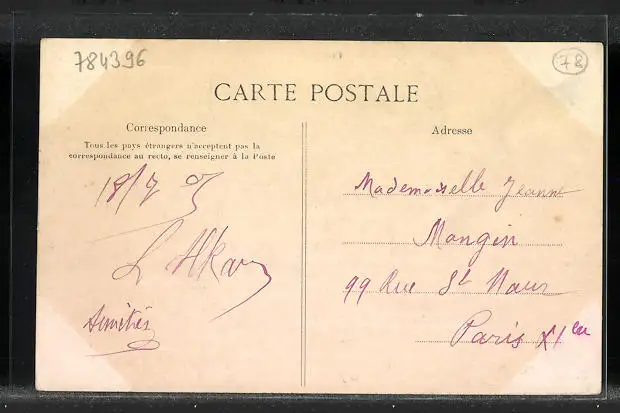 784396
78
CARTE POSTALE
Correspondance
Tous les pays étrangers n'acceptent pas la
correspondance au recto, se renseigner à la Poste
Adresse
18/7 05
Mademoiselle Jeanne
Mangin
99 Rue St Maur
Paris XIem
Amitiés